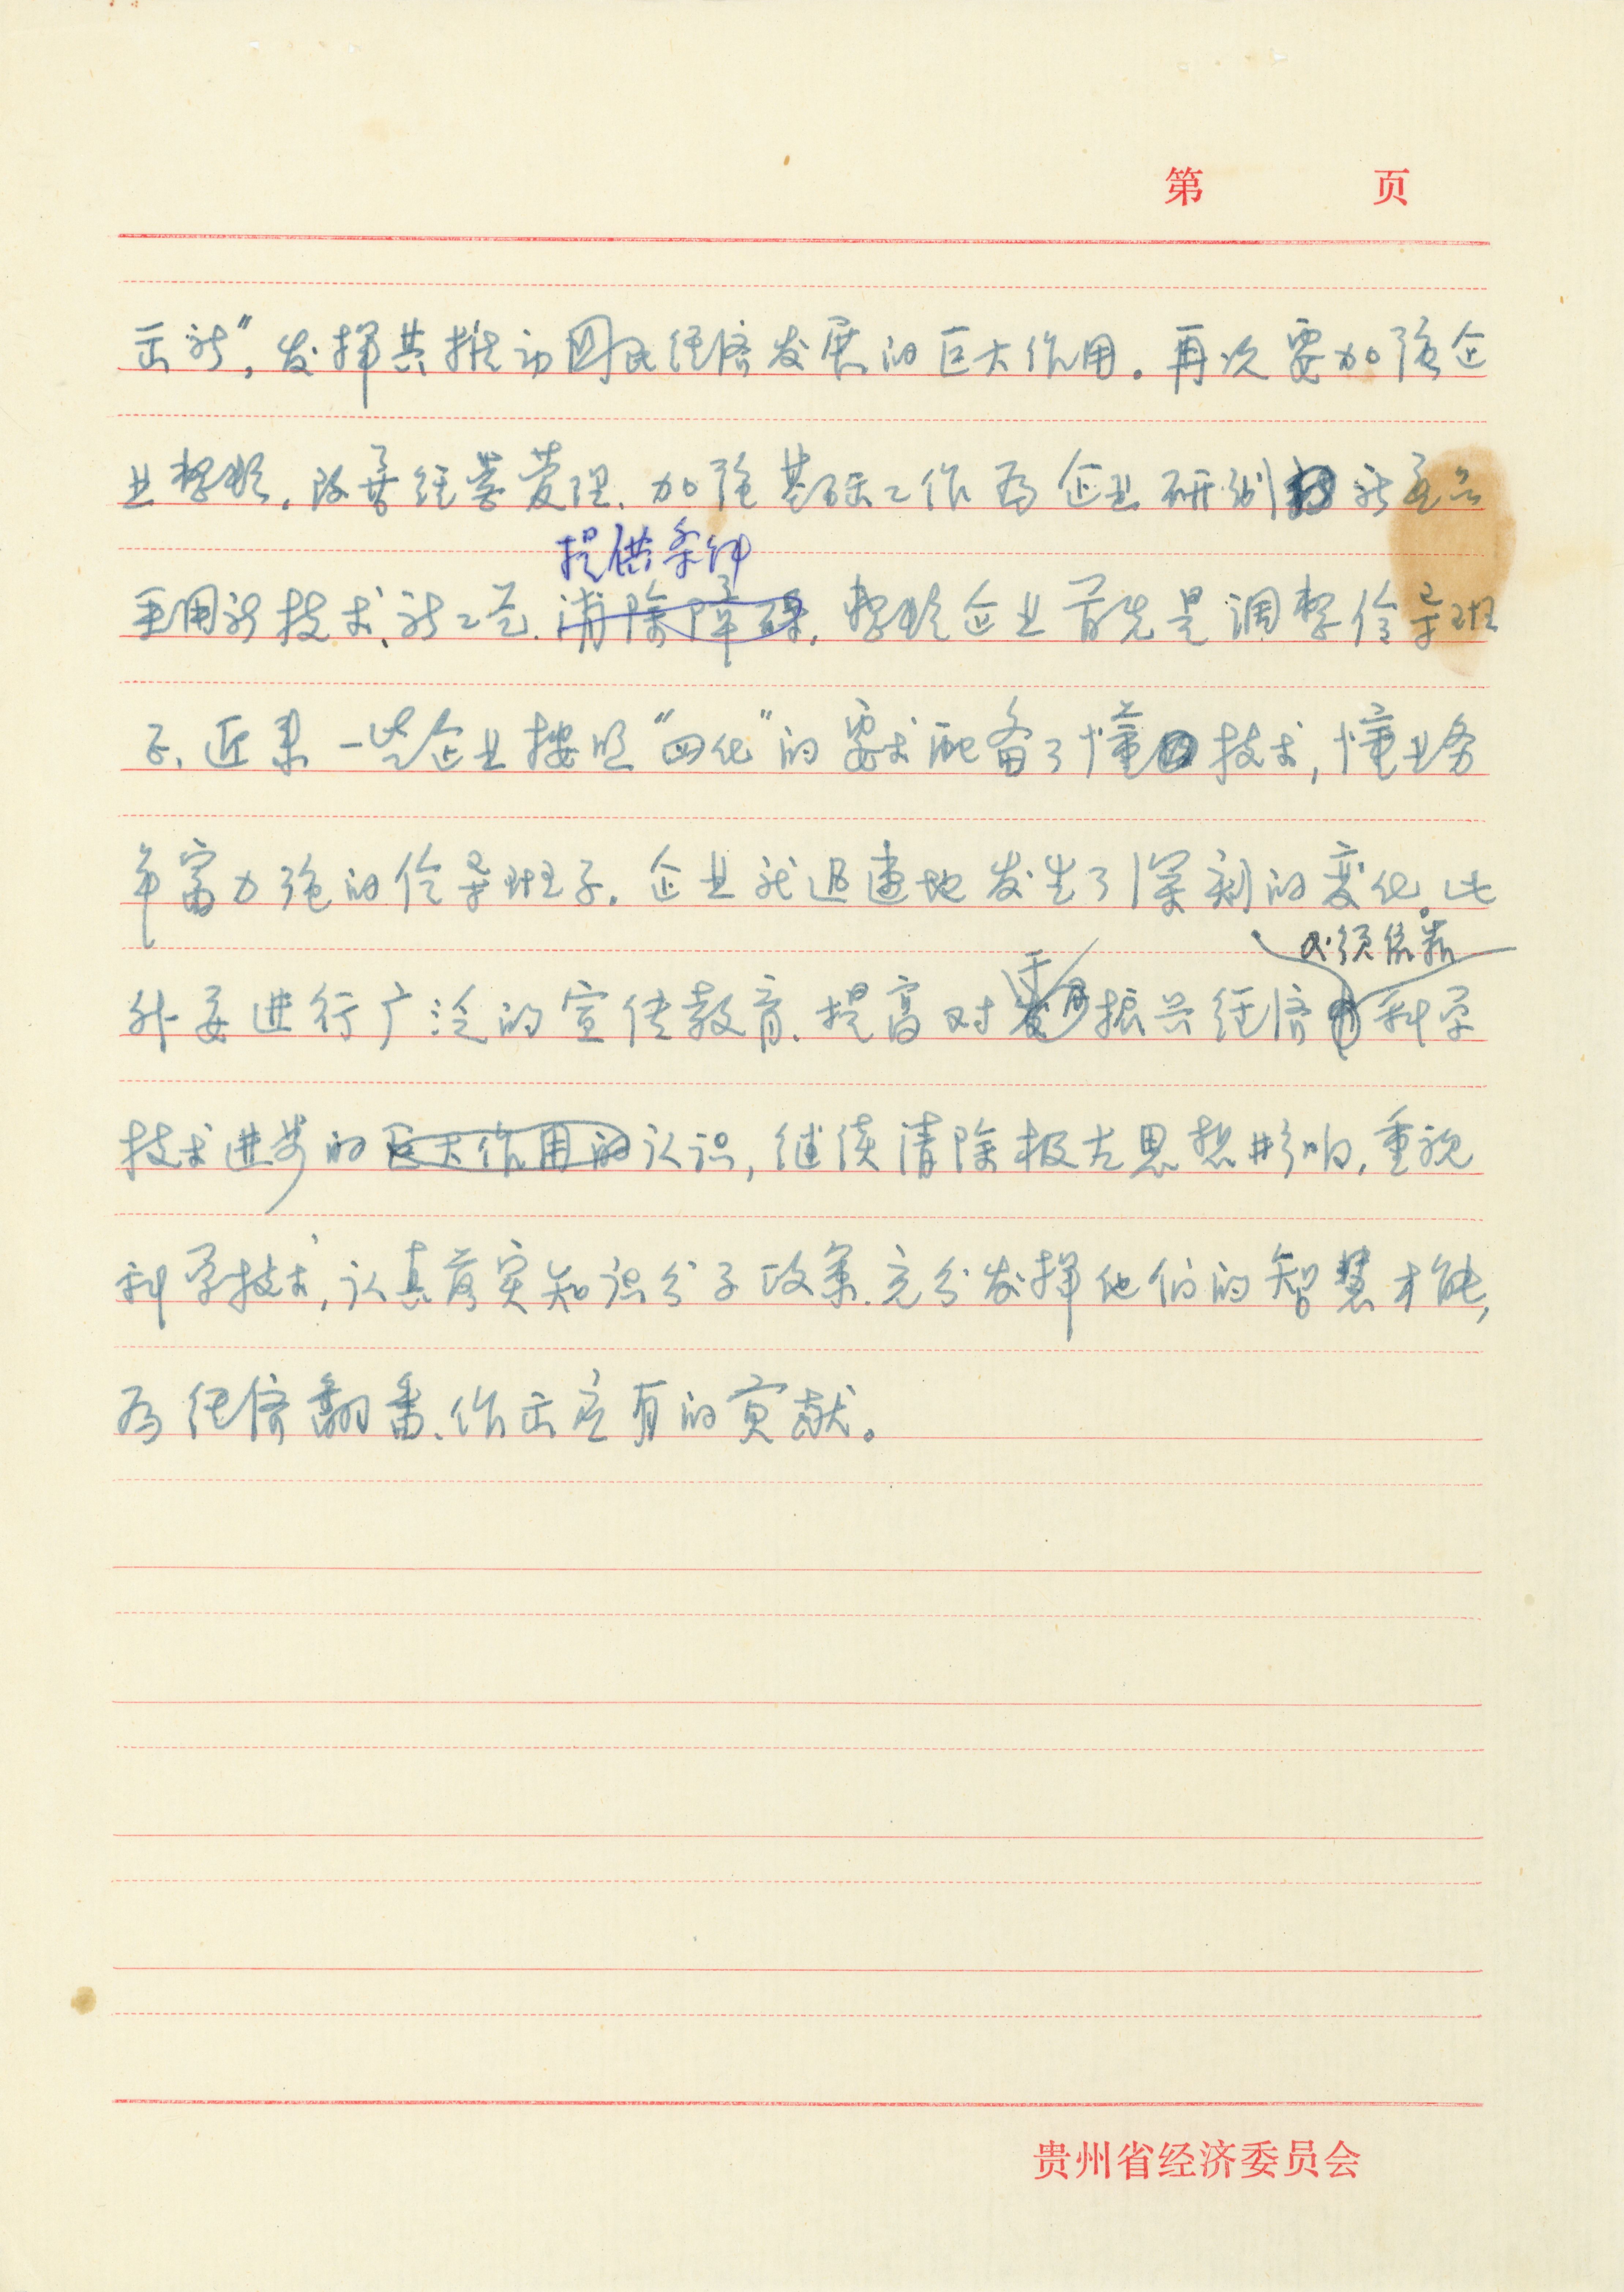 第 页
出新”,发挥其推动国民经济发展的巨大作用。再次要加强企
业整顿,改善经营管理,加强基础工作为企业研制新产品
提供条件
采用新技术、新工艺,清除障碍,整顿企业首先是调整领导班
子,近来一些企业按照“四化”的要求配备了懂技术,懂业务
年富力强的领导班子,企业就迅速地发生了深刻的变化。此
必须依靠
外要进行广泛的宣传教育,提高对振兴经济科学
技术进步的巨大作用的认识,继续清除极左思想影响,重视
科学技术,认真落实知识分子政策,充分发挥他们的智慧才能,
为经济翻番,作出应有的贡献。
贵州省经济委员会